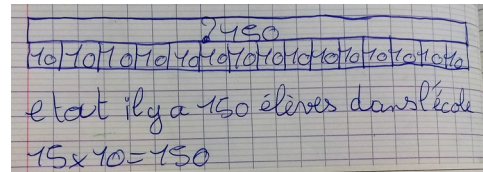 ? 150
10 10 10 10 10 10 10 10 10 10 10 10 10 10 10
etout il y a 150 élèves dans l'école
15 x 10 = 150